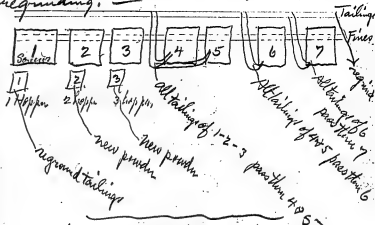 regrinding. —
Tailings
Fines
1 2 3 4 5 6 7
Screens
1 2 3
1 Hopper 2 hoppr 3 hopper
regrind tailings
new powdr
new powdr
all tailings of 1-2-3 pass thru 4 & 5 —
All tailings of 4 & 5 pass thru 6
All tailings of 6 pass thru 7
regrind